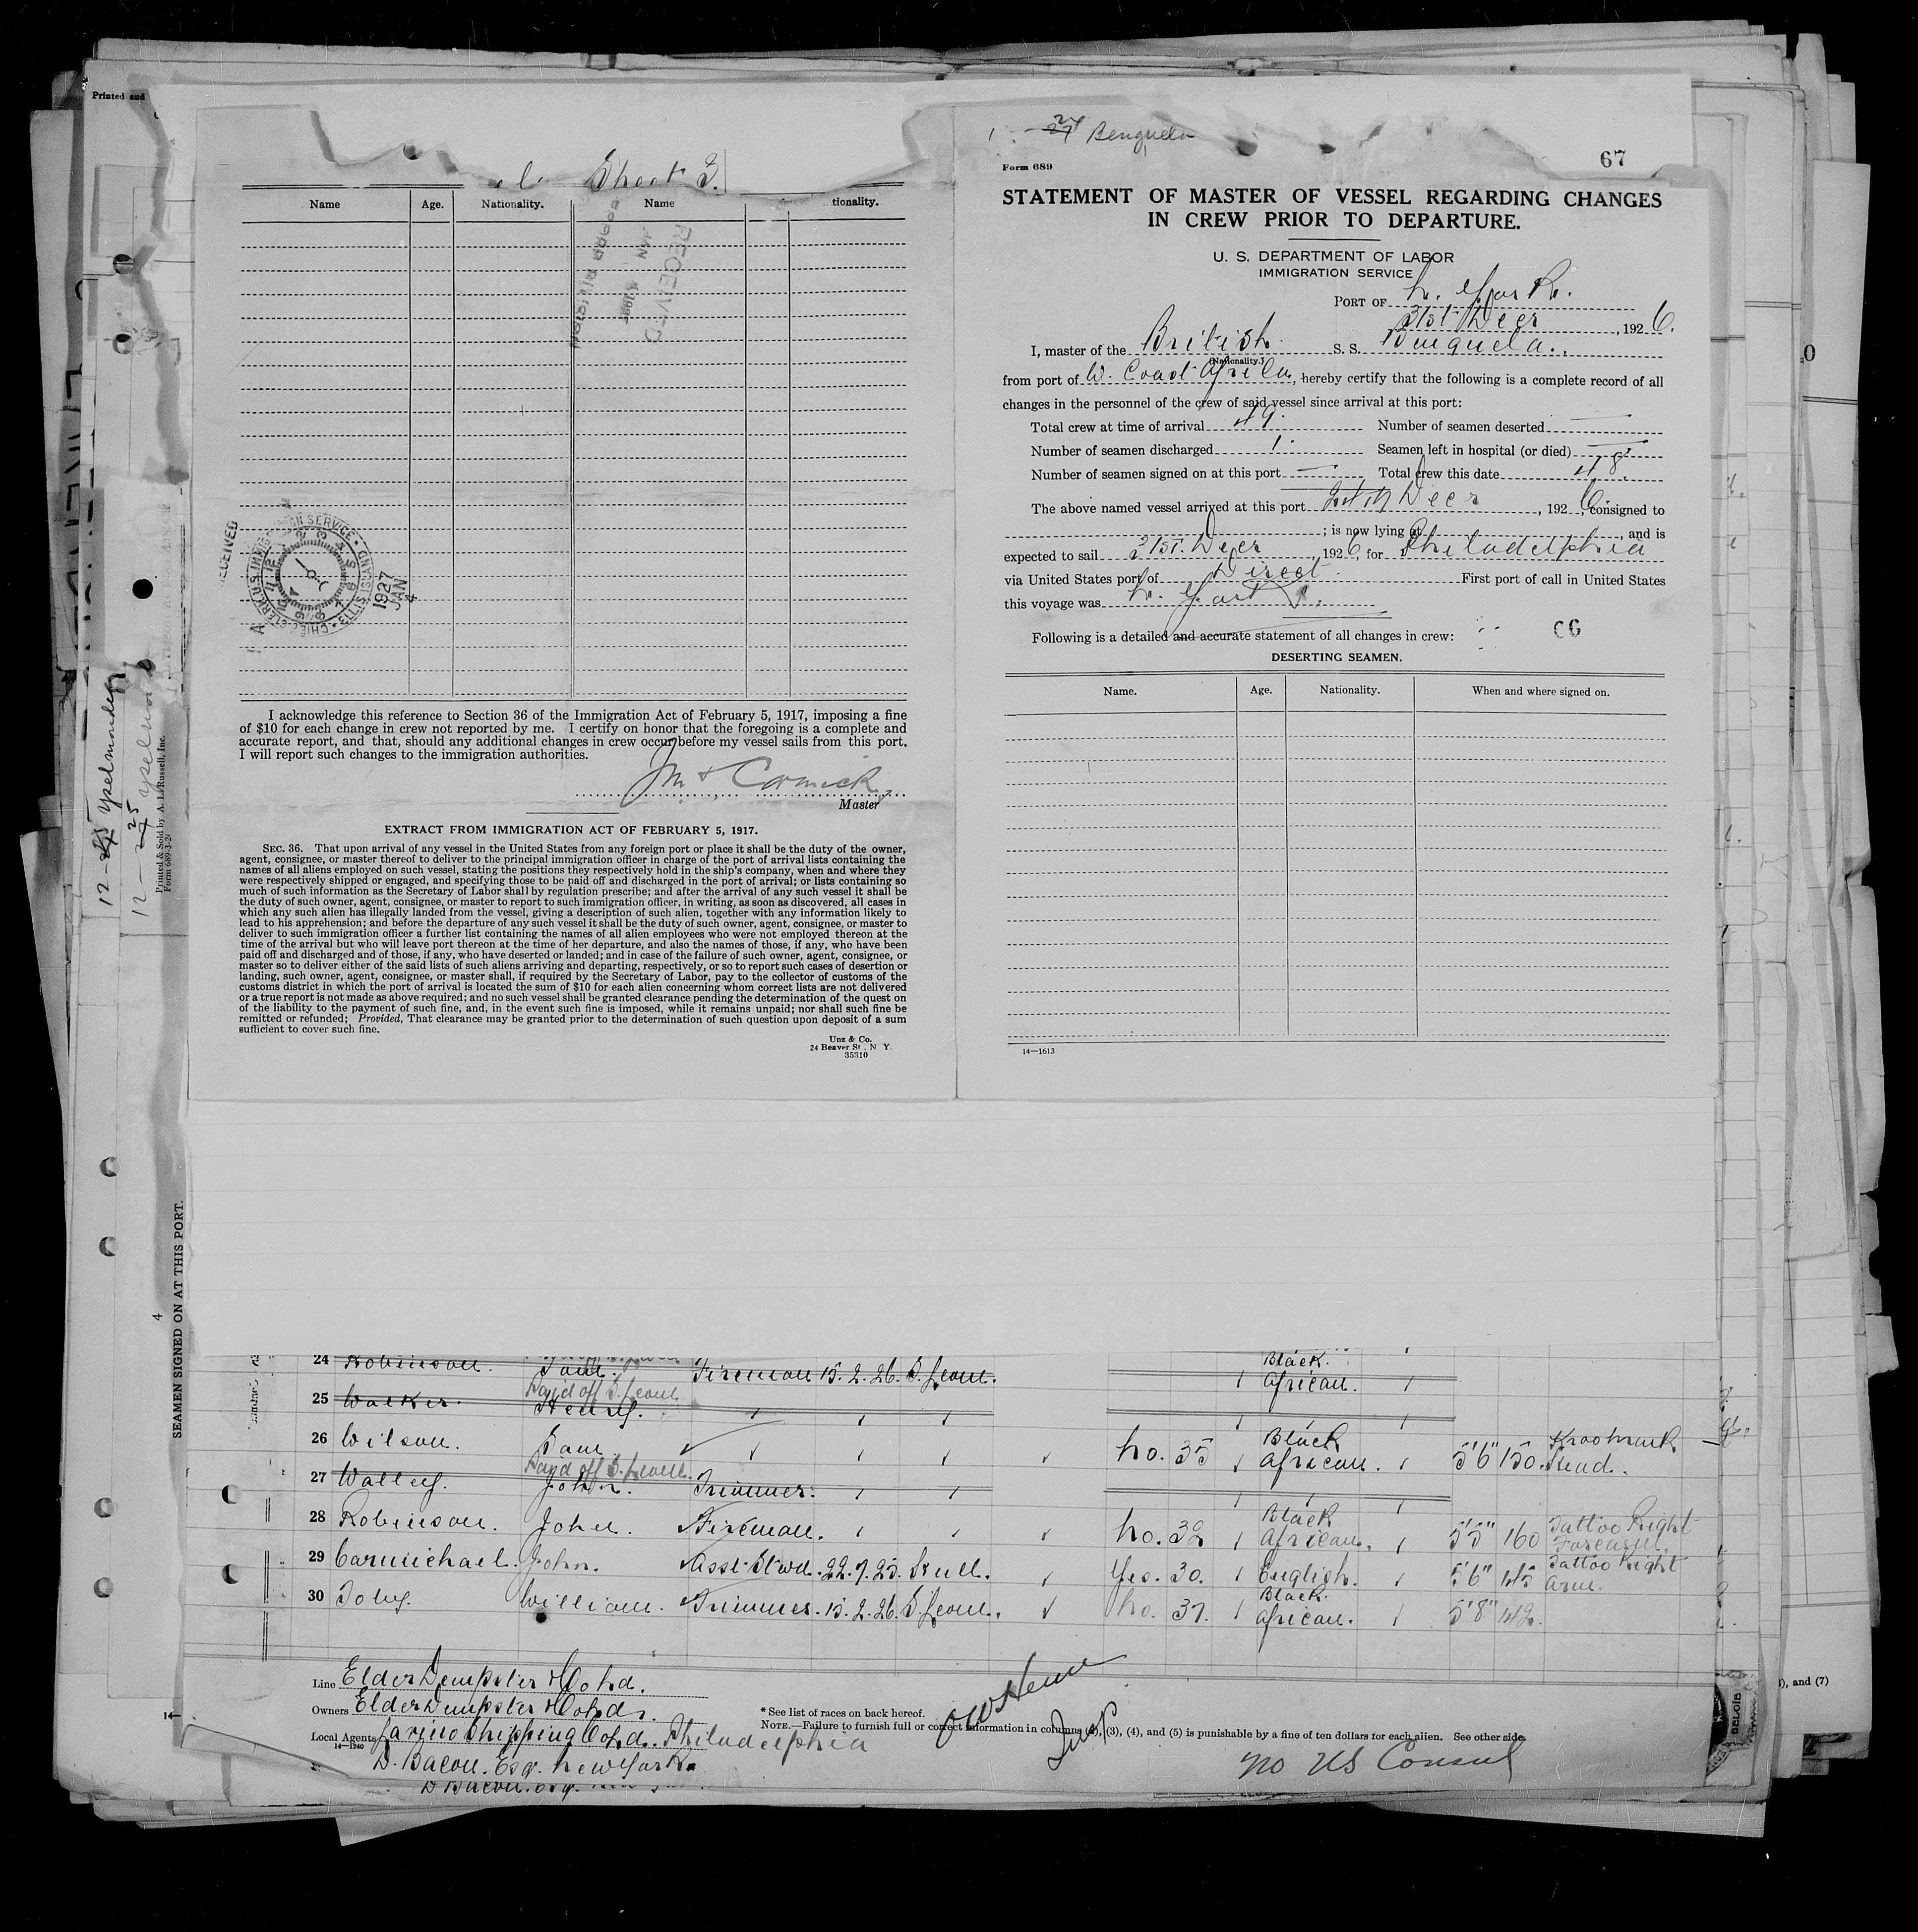 Printed and
Sheet 3.
Name Age. Nationality. Name tionality.
RECEIVED
JAN
RECORD DIVISION
RECEIVED
CHIEF CLERK U.S. IMMIGRATION SERVICE ELLIS ISLAND
1927
JAN
4
I acknowledge this reference to Section 36 of the Immigration Act of February 5, 1917, imposing a fine
of $10 for each change in crew not reported by me. I certify on honor that the foregoing is a complete and
accurate report, and that, should any additional changes in crew occur before my vessel sails from this port,
I will report such changes to the immigration authorities.
Cormick
Master
EXTRACT FROM IMMIGRATION ACT OF FEBRUARY 5, 1917.
SEC. 36. That upon arrival of any vessel in the United States from any foreign port or place it shall be the duty of the owner,
agent, consignee, or master thereof to deliver to the principal immigration officer in charge of the port of arrival lists containing the
names of all aliens employed on such vessel, stating the positions they respectively hold in the ship's company, when and where they
were respectively shipped or engaged, and specifying those to be paid off and discharged in the port of arrival; or lists containing so
much of such information as the Secretary of Labor shall by regulation prescribe; and after the arrival of any such vessel it shall be
the duty of such owner, agent, consignee, or master to report to such immigration officer, in writing, as soon as discovered, all cases in
which any such alien has illegally landed from the vessel, giving a description of such alien, together with any information likely to
lead to his apprehension; and before the departure of any such vessel it shall be the duty of such owner, agent, consignee, or master to
deliver to such immigration officer a further list containing the names of all alien employees who were not employed thereon at the
time of the arrival but who will leave port thereon at the time of her departure, and also the names of those, if any, who have been
paid off and discharged and of those, if any, who have deserted or landed; and in case of the failure of such owner, agent, consignee, or
master so to deliver either of the said lists of such aliens arriving and departing, respectively, or so to report such cases of desertion or
landing, such owner, agent, consignee, or master shall, if required by the Secretary of Labor, pay to the collector of customs of the
customs district in which the port of arrival is located the sum of $10 for each alien concerning whom correct lists are not delivered
or a true report is not made as above required; and no such vessel shall be granted clearance pending the determination of the quest on
of the liability to the payment of such fine, and, in the event such fine is imposed, while it remains unpaid; nor shall such fine be
remitted or refunded; Provided, That clearance may be granted prior to the determination of such question upon deposit of a sum
sufficient to cover such fine.
Unz & Co.
24 Beaver St., N Y.
35310
1 - 27 24 Benguela
Form 689
67
STATEMENT OF MASTER OF VESSEL REGARDING CHANGES
IN CREW PRIOR TO DEPARTURE.
U. S. DEPARTMENT OF LABOR
IMMIGRATION SERVICE
PORT OF N. York.
31st Decr, 1926.
I, master of the British S. S. Benguela.,
(Nationality.)
from port of W. Coast Africa, hereby certify that the following is a complete record of all
changes in the personnel of the crew of said vessel since arrival at this port:
Total crew at time of arrival 49. Number of seamen deserted —
Number of seamen discharged 1. Seamen left in hospital (or died) —
Number of seamen signed on at this port — Total crew this date 48.
The above named vessel arrived at this port Decr, 1926, consigned to
; is now lying at , and is
expected to sail 31st. Decr, 1926, for Philadelphia
via United States port of Direct. First port of call in United States
this voyage was N. York.
Following is a detailed and accurate statement of all changes in crew: CG
DESERTING SEAMEN.
Name. Age. Nationality. When and where signed on.
14—1613
12 - 25 Yselmonde
12 — 27 25 Yselmonde
Printed & Sold by A. L. Russell, Inc.
SEAMEN SIGNED ON AT THIS PORT.
4
24 Robinson. Tom. Fireman 15. 2. 26. S. Leone. Black. African.
25 Walker. Henry. Paid off S. Leone
26 Wilson. Sam No. 35 Black African. 5'6" 150. Kroomark Head.
27 Walley. John. Paid off S. Leone. Trimmer.
28 Robinson. John. Fireman. No. 32 Black African. 5'5" 160 Tattoo Right Forearm.
29 Carmichael. John. Asst Stwd. 22. 7. 25. Hull. Yes. 30. English. 5'6" 145 Tattoo Right Arm.
30 Toby. William. Trimmer. 15. 2. 26. S. Leone. No. 37. Black. African. 5'8" 142.
Line Elder Dempster & Co Ltd.
Owners Elder Dempster & Co Ltd.
Local Agents Larino Shipping Co Ltd. Philadelphia
14—1240
D. Bacon. Esq. New York.
D Bacon. Esq.
* See list of races on back hereof.
NOTE.—Failure to furnish full or correct information in columns (2), (3), (4), and (5) is punishable by a fine of ten dollars for each alien. See other side.
Insp
No US Consul
), and (7)